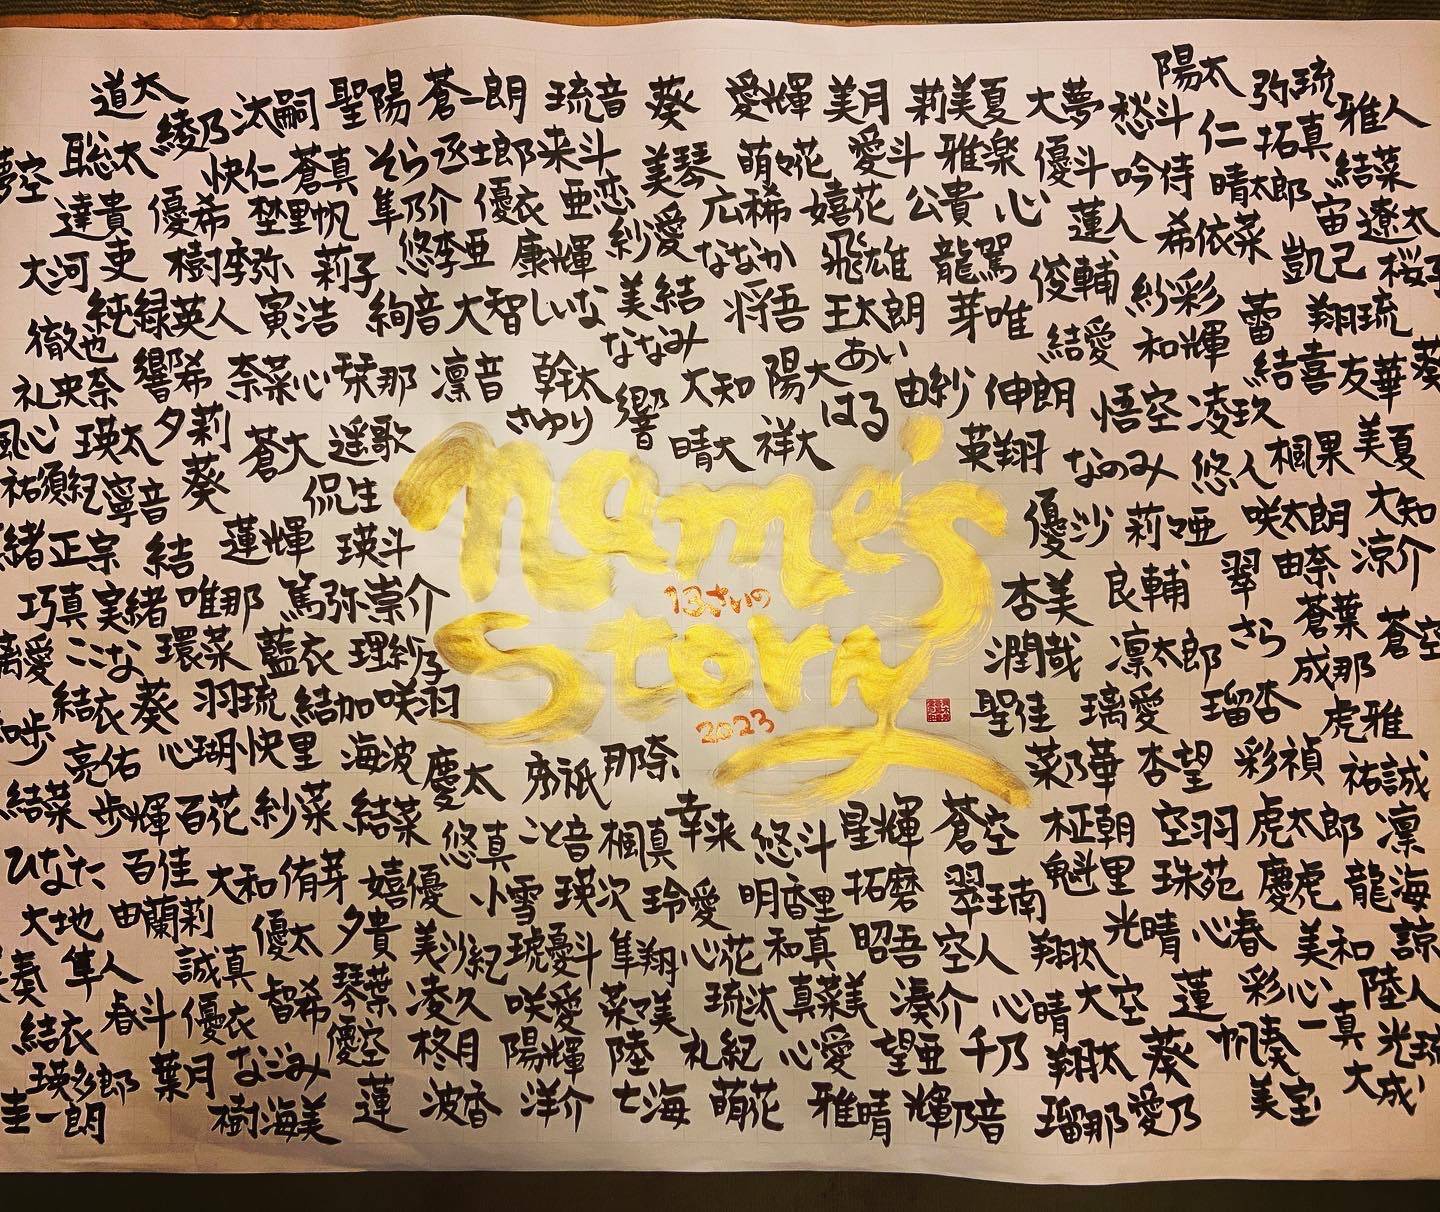 道太 綾乃 汰嗣 聖陽 蒼一朗 琉音 葵 愛輝 美月 莉美夏 大夢 愁斗 陽太 仁 弥琉 拓真 雅人
夢空 聡太 快仁 蒼真 そら 丞士郎 来斗 美琴 萌々花 愛斗 雅楽 優斗 吟侍 晴太郎 結菜
達貴 優希 埜里帆 隼乃介 優衣 亜恋 紗愛 広稀 嬉花 公貴 心 蓮人 希依菜 宙 遼太
大河 吏 樹李弥 莉子 悠李亜 康輝 ななか 飛雄 龍駕 俊輔 紗彩 凱己
純緑 英人 寅浩 絢音 大智 しいな 美結 将吾 王太朗 芽唯 結愛 和輝 蕾 翔琉
徹也 響希 奈菜心 栞那 凛音 幹太 ななみ 大知 陽大 あい 由紗 伸朗 悟空 凌玖 結喜 友華 葵
礼央奈 瑛太 夕莉 蒼大 遥歌 さゆり 響 晴大 祥大 はる 英翔 なのみ 悠人 楓果 美夏
祐須紀 寧音 葵 侃生 優沙 莉亜 咲太朗 大知
緒 正宗 結 蓮輝 瑛斗 name's 杏美 良輔 翠 由奈 涼介
巧真 実緒 唯那 篤弥 崇介 13さいの さら 蒼葉 蒼空
璃愛 ここな 環菜 藍衣 理紗子 story 潤哉 凛太郎 成那
結衣 葵 羽琉 結加 咲羽 2023 聖佳 璃愛 瑠杏 虎雅
亮佑 心瑚 快里 海波 慶太 那奈 菜乃華 杏望 彩禎 祐誠
結菜 歩輝 百花 紗菜 結菜 悠真 こと音 楓真 幸来 悠斗 星輝 蒼空 柾朝 空羽 虎太郎 凛
ひなた 百佳 大和 侑芽 嬉優 小雪 瑛次 玲愛 明香里 拓磨 翠瑚 魁里 珠苑 慶虎 龍海
大地 由蘭莉 優太 夕貴 美沙紀 琥憂斗 隼翔 心花 和真 昭吾 空人 翔太 光晴 心春 美和 諒
奏 隼人 誠真 智希 琴葉 凌久 咲愛 菜々美 琉汰 真菜美 湊介 心晴 大空 蓮 彩心 一真 陸人
結衣 春斗 優衣 優空 柊月 陽輝 陸 礼紀 心愛 望亜 千乃 翔太 葵 帆奏 光瑠
瑛多郎 葉月 なごみ 蓮 波香 洋介 七海 萌花 雅晴 輝乃音 瑠那 愛乃 美宝 大成
圭一朗 樹海美